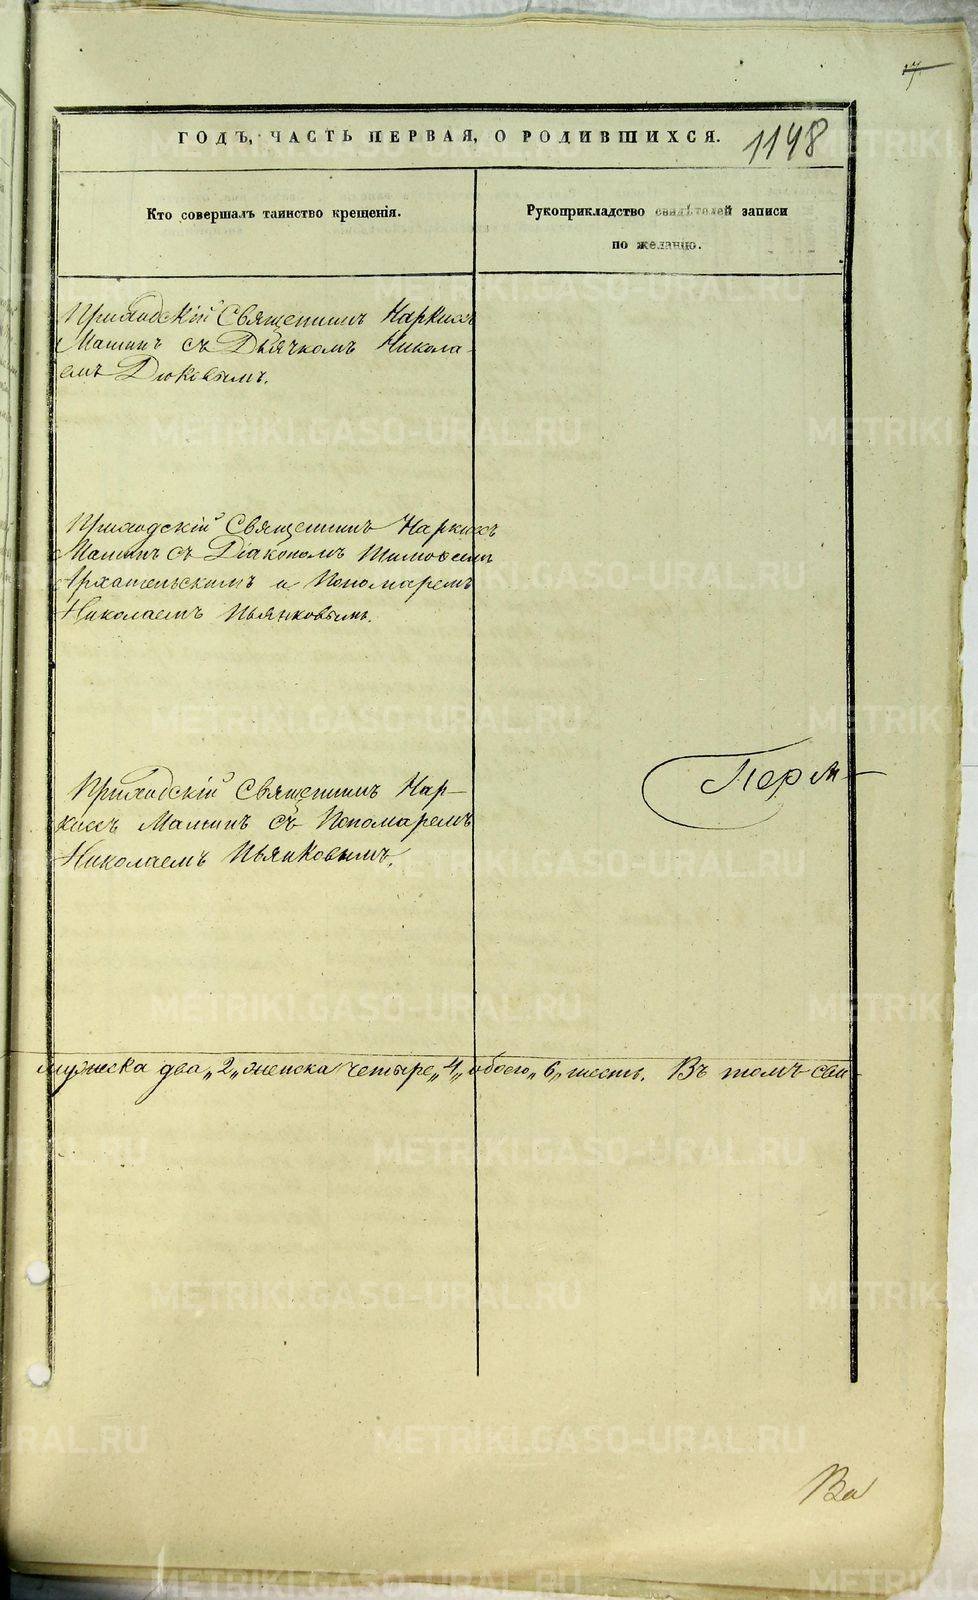 17
ГОДЪ, ЧАСТЬ ПЕРВАЯ, О РОДИВШИХСЯ.
1148
Кто совершалъ таинство крещенія.
Рукоприкладство свидѣтелей записи
по желанію.
Приходскій Священникъ Наркиссъ
Мамин съ Дьячкомъ Никола-
емъ Дюковымъ.
Приходскій Священникъ Наркиссъ
Маминъ съ Діакономъ Тимофеемъ
Архангельскимъ и Пономаремъ
Николаемъ Пьянковымъ.
Приходскій Священникъ Нар-
киссъ Маминъ съ Пономаремъ
Николаемъ Пьянковымъ.
Перм-
мужеска два „2„ женска четыре „4„ обоего „6„ шесть. Въ томъ сви-
METRIKI.GASO-URAL.RU